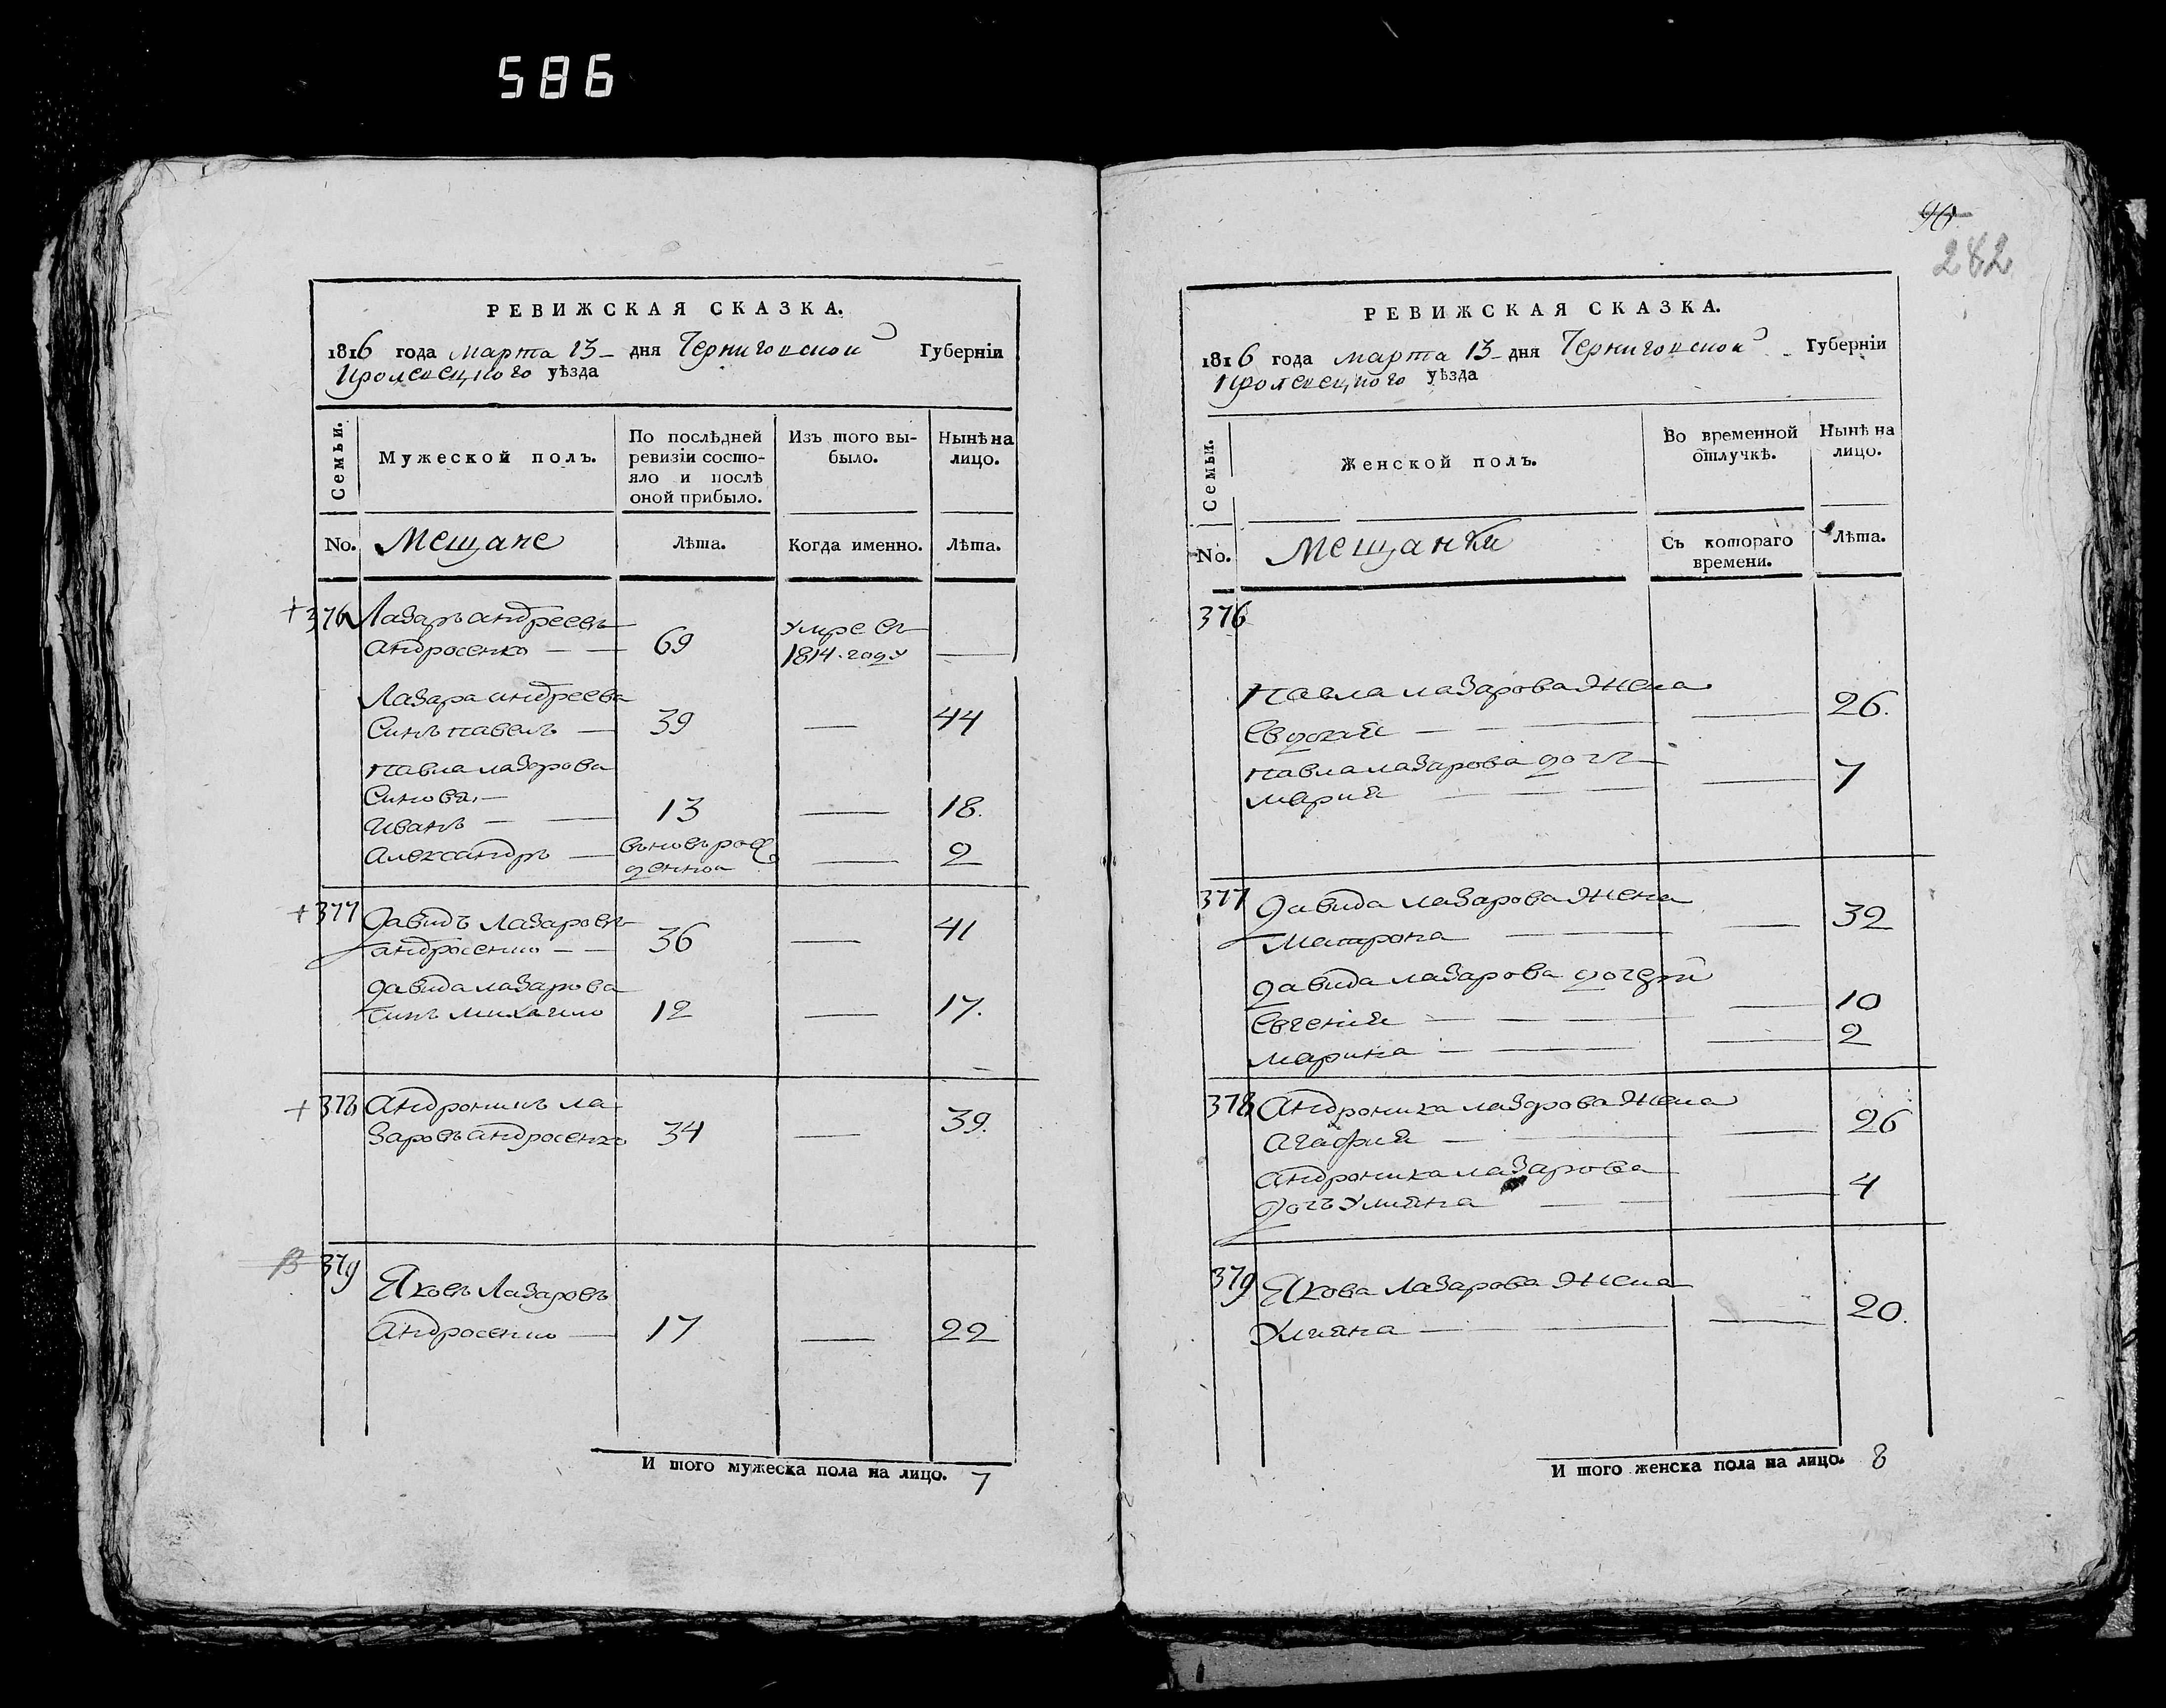 586
РЕВИЖСКАЯ СКАЗКА.
1816 года марта 13 – дня Черниговской Губерніи
Кролевецкого уѣзда
Семьи.
Мужеской полъ.
По послѣдней ревизіи состо-
яло и послѣ
оной прибыло.
Изъ того вы-
было.
Нынѣ на
лицо.
No. Мещане Лѣта. Когда именно. Лѣта.
+ 376 Лазаръ андреевъ
андросенко — — 69 умре въ 1814. году —
Лазара андреева
Синъ павелъ — 39 — 44
павла лазарова
Синови, —
Иванъ — — 13 — 18.
александръ — вновь рож
денной — 2
+ 377 Давидъ Лазаровъ
андросенко — — 36 — 41
давида лазарова
синъ михаило 12 — 17.
+ 378 Андроникъ ла
заровъ андросенко 34 — 39.
379 Яковъ Лазаровъ
андросенко — 17 — 22
И того мужеска пола на лицо. 7
90
282
РЕВИЖСКАЯ СКАЗКА.
1816 года марта 13 – дня Черниговской Губерніи
Кролевецкого уѣзда
Семьи.
Женской полъ.
Во временной
отлучкѣ.
Нынѣ на
лицо.
No. Мещанки Съ котораго
времени. Лѣта.
376
павла лазарова жена
Евдокия — — — — 26.
павла лазарова дочь —
мария — — — — 7
377 Давида лазарова жена
матрона — — — 32
давида лазарова дочери
Евгения — — — — 10
марина — — — — 2
378 Андроника лазарова жена
агафия — — — 26
андроника лазарова
дочь улияна — — 4
379 Якова лазарова жена
улияна — — — 20.
И того женска пола на лицо. 8